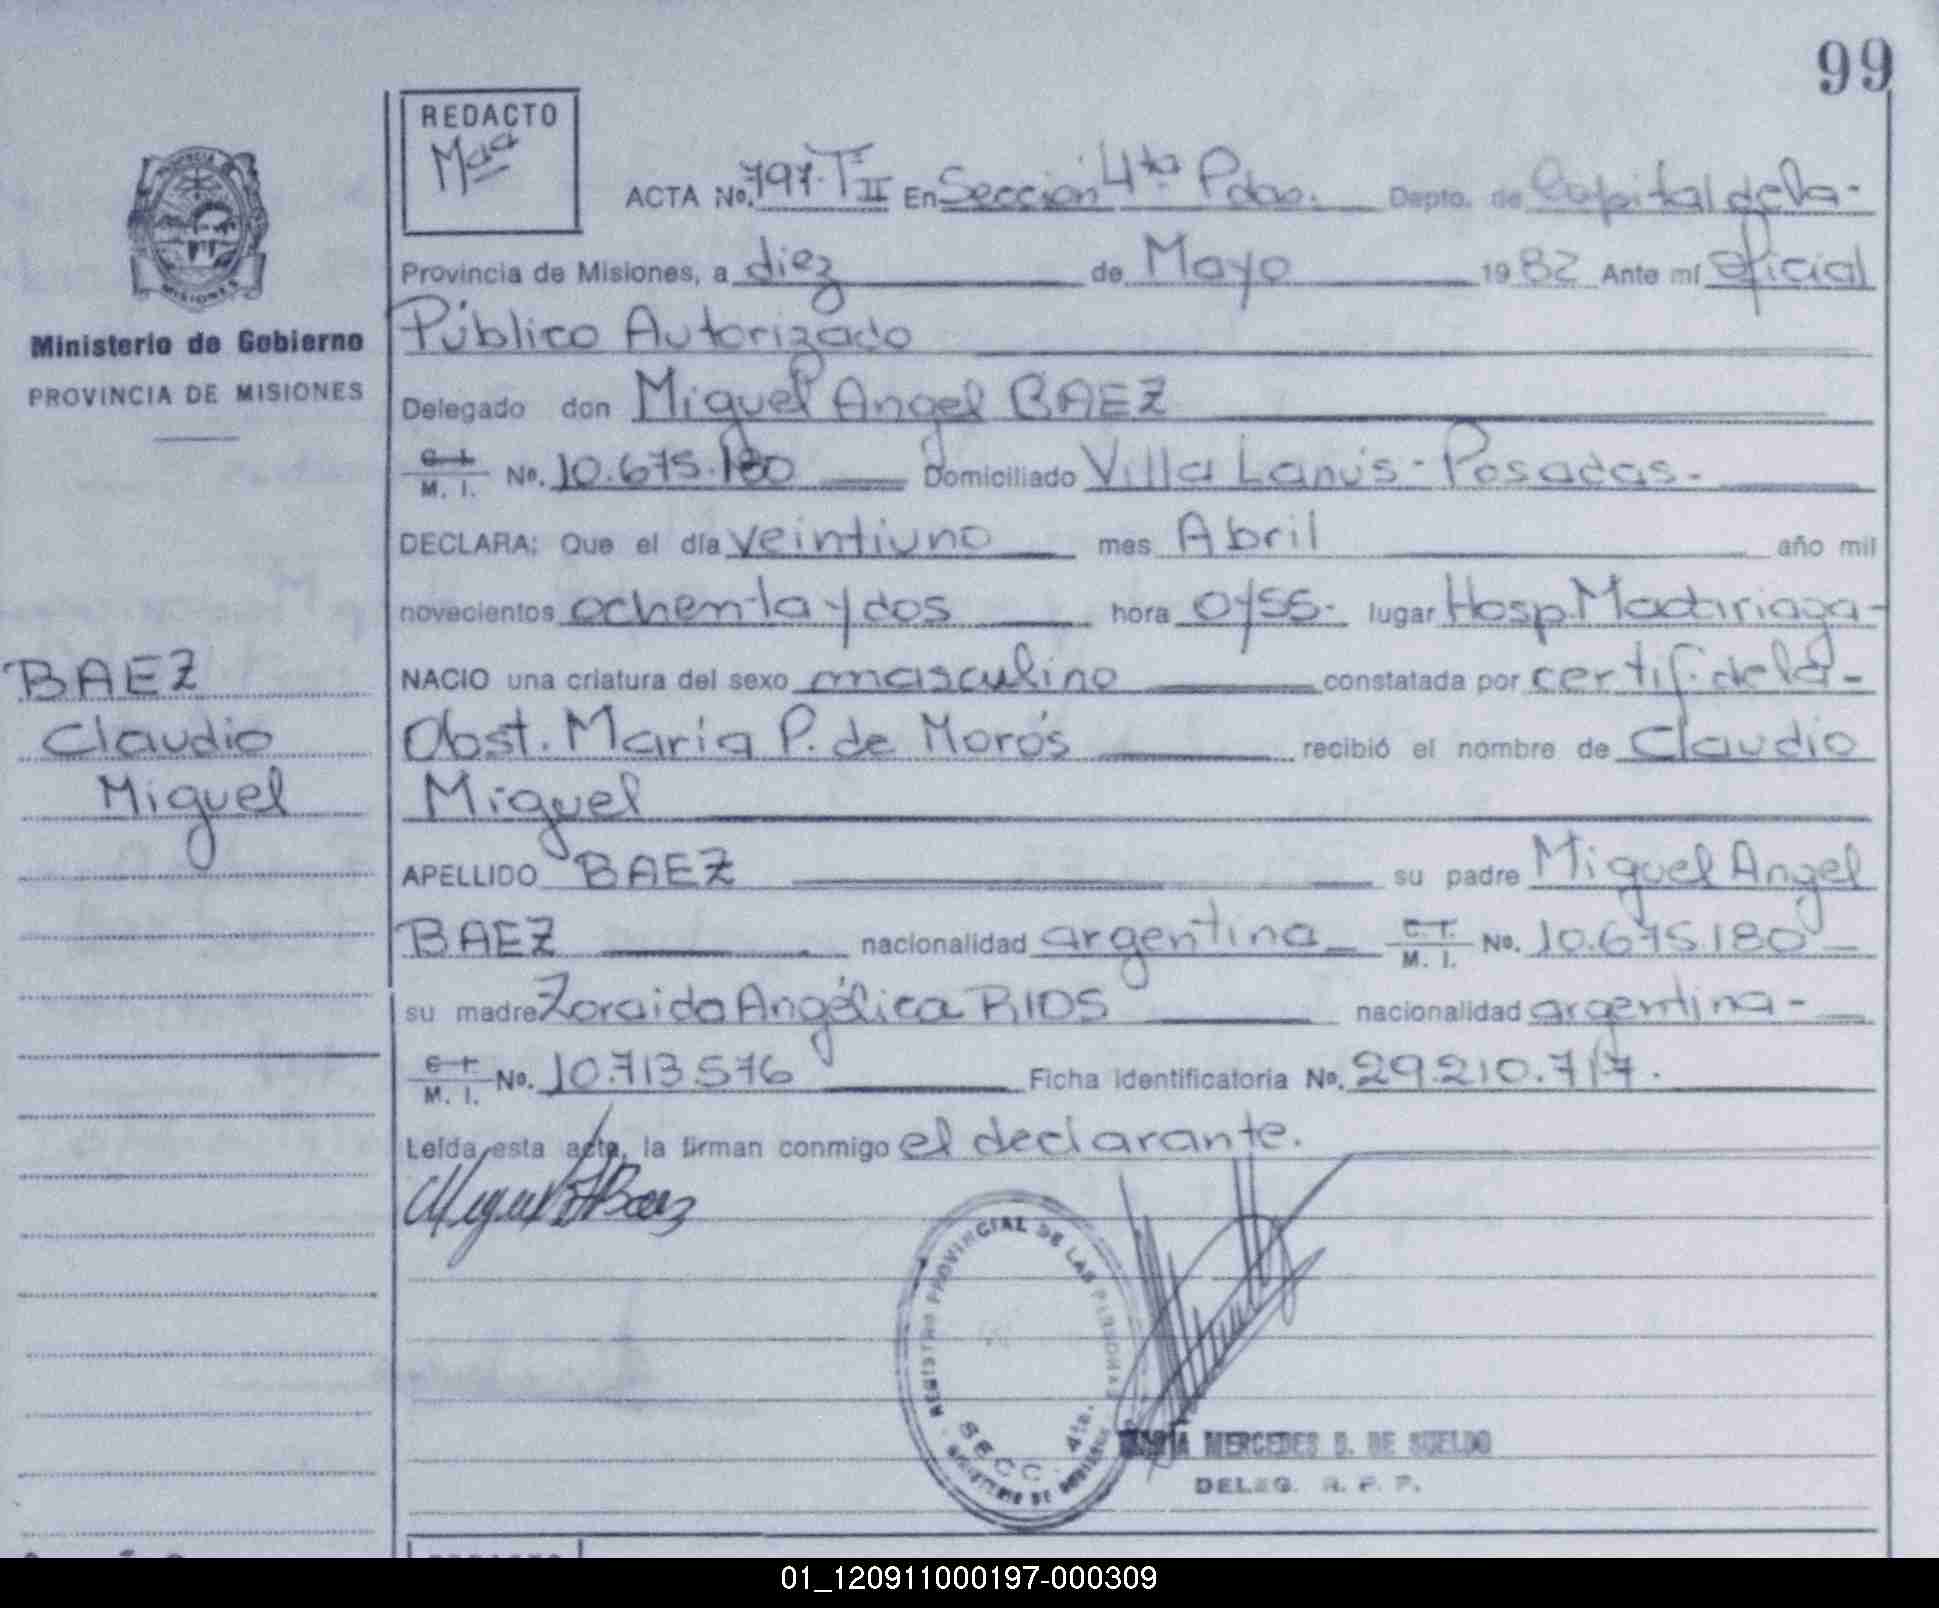 99
REDACTO
Maa
ACTA No. 797-T II En Sección 4ta Pdas. Depto. de Capital de la-
Provincia de Misiones, a diez de Mayo 1982 Ante mí oficial
Público Autorizado
Delegado don Miguel Angel BAEZ
C. I. M. I. No. 10.675.180 Domiciliado Villa Lanús - Posadas.-
DECLARA: Que el día veintiuno mes Abril año mil
novecientos ochenta y dos hora 0755- lugar Hosp. Madariaga-
NACIO una criatura del sexo masculino constatada por certif. de la-
Obst. María P. de Morós recibió el nombre de Claudio
Miguel
APELLIDO BAEZ su padre Miguel Angel
BAEZ nacionalidad argentina C. I. M. I. No. 10.675.180
su madre Zoraida Angélica RIOS nacionalidad argentina-
C. I. M. I. No. 10.713.576 Ficha Identificatoria No. 29.210.717.
Leída esta acta, la firman conmigo el declarante.
Miguel A Baez
REGISTRO PROVINCIAL DE LAS PERSONAS
SECC. 4ta.
MINISTERIO DE GOBIERNO
MARIA MERCEDES D. DE SUELDO
DELEG. R. P. P.
PROVINCIA
MISIONES
Ministerio de Gobierno
PROVINCIA DE MISIONES
BAEZ
Claudio
Miguel
01_120911000197-000309